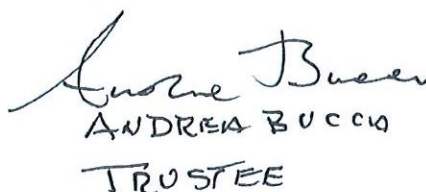 Andrea Bucci
ANDREA BUCCIA
TRUSTEE